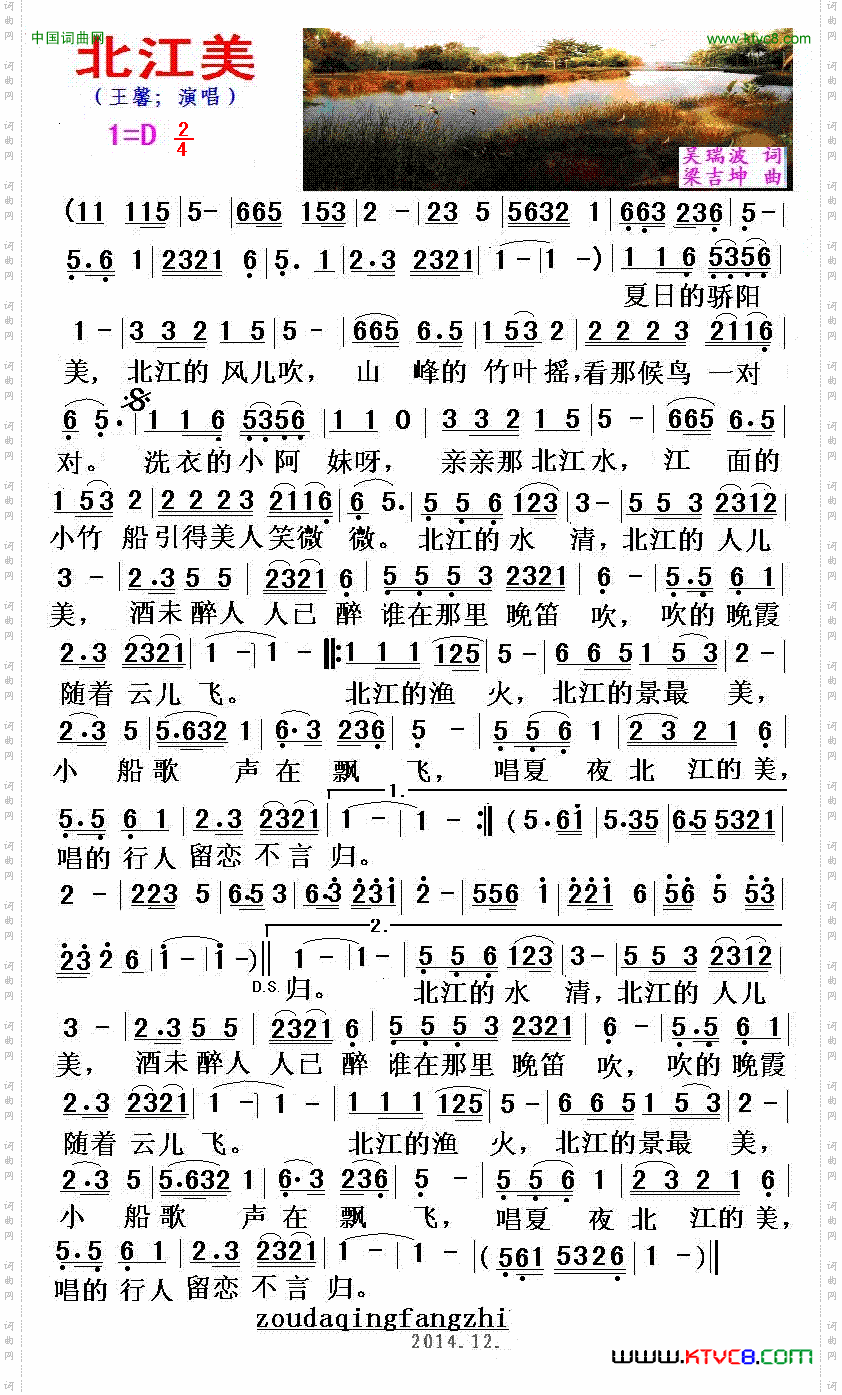 中国词曲网
www.ktvc8.com
北江美
（王馨；演唱）
1=D 2/4
吴瑞波 词
梁吉坤 曲
(11 115 | 5- | 665 153 | 2 - | 23 5 | 5632 1 | 663 236 | 5 - |
5.6 1 | 2321 6 | 5. 1 | 2.3 2321 | 1 - | 1 -) | 1 1 6 5356 |
夏日的骄阳
1 - | 3 3 2 1 5 | 5 - | 665 6.5 | 1 53 2 | 2 2 2 3 2116 |
美，北江的 风儿吹， 山 峰的 竹叶摇，看那候鸟 一对
6 5. | 1 1 6 5356 | 1 1 0 | 3 3 2 1 5 | 5 - | 665 6.5 |
对。 洗衣的小阿 妹呀， 亲亲那 北江水，江 面的
1 53 2 | 2 2 2 3 2116 | 6 5. | 5 5 6 123 | 3- | 5 5 3 2312 |
小竹 船引得美人笑微 微。 北江的水 清，北江的 人儿
3 - | 2.3 5 5 | 2321 6 | 5 5 5 3 2321 | 6 - | 5.5 6 1 |
美， 酒未醉人 人已 醉 谁在那里 晚笛 吹， 吹的晚霞
2.3 2321 | 1 - | 1 - ‖: 1 1 1 125 | 5 - | 6 6 5 1 5 3 | 2 - |
随着云儿 飞。 北江的渔 火，北江的景最 美，
2.3 5 | 5.632 1 | 6.3 236 | 5 - | 5 5 6 1 | 2 3 2 1 6 |
小 船歌 声在 飘 飞， 唱夏 夜北 江的美，
1.
5.5 6 1 | 2.3 2321 | 1 - | 1 - :‖ (5.61 | 5.35 | 6.5 5321 |
唱的行人 留恋 不言 归。
2 - | 223 5 | 6.5 3 | 6.3 231 | 2 - | 556 1 | 221 6 | 56 5 53 |
2.
23 2 6 | 1 - | 1 -) ‖ 1 - | 1 - | 5 5 6 123 | 3- | 5 5 3 2312 |
D.S. 归。 北江的水 清，北江的 人儿
3 - | 2.3 5 5 | 2321 6 | 5 5 5 3 2321 | 6 - | 5.5 6 1 |
美， 酒未醉人 人已 醉 谁在那里 晚笛 吹， 吹的晚霞
2.3 2321 | 1 - | 1 - | 1 1 1 125 | 5 - | 6 6 6 5 1 5 3 | 2 - |
随着云儿 飞。 北江的渔 火，北江的景最 美，
2.3 5 | 5.632 1 | 6.3 236 | 5 - | 5 5 6 1 | 2 3 2 1 6 |
小 船歌 声在 飘 飞， 唱夏 夜北 江的美，
5.5 6 1 | 2.3 2321 | 1 - | 1 - | (561 5326 | 1 -) ‖
唱的行人 留恋 不言 归。
zoudaqingfangzhi
2014.12.
www.KTVC8.com